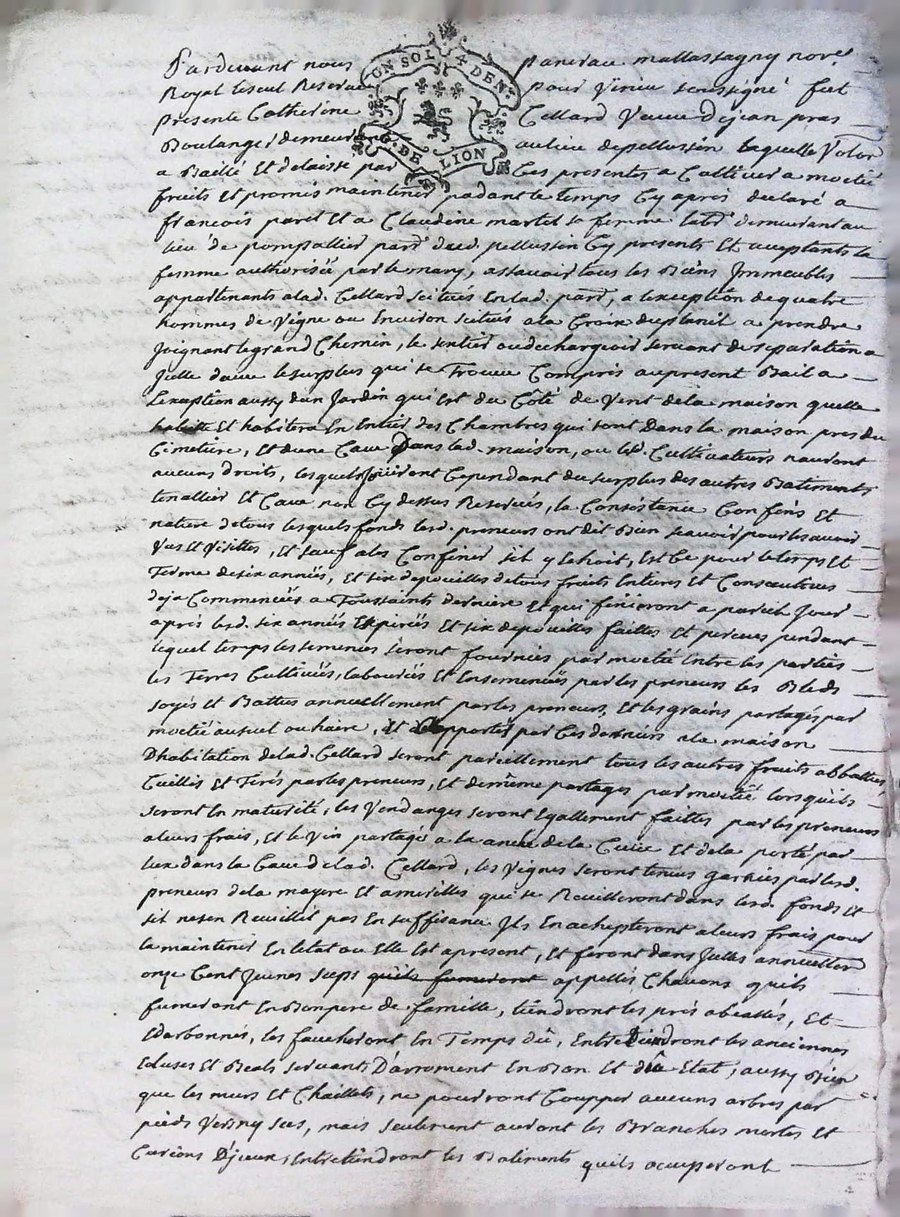 Pardevant nous
Royal Reservé pour Vienne soussigné fut
presente Catherine Cellard Veuve de jean pras
Boulanger demeurant au lieu de pellussin Laquelle Volont
a Baillé Et delaissé par Ces presentes a Cultiver a moctié
fruits Et promis maintenir padant le temps Cy apres declaré a
francois paret Et a Claudine martel sa femme labr demeurant au
lieu de pompallier parr dud. pellussin Cy presents Et aceptants la
femme authorisée par le mary, assavoir tous les Biens Immeubles
appartenants a lad. Cellard scitués En lad. parr, a lexception de quatre
hommes de Vigne ou Environ scitués a la Croix a prendre
Joignant le grand Chemin, le sentier ou dechargeoir servant de separation a
Jcelle davec le surplus qui se Trouve Compris au present Bail a
Lexception aussy dun Jardin qui est du Coté de Vent de la maison quelle
habitte Et habitera En Entier des Chambres qui sont Dans la maison pres du
Cimetiere, Et dune Cave Dans lad. maison, ou led. Cultivateurs nauront
aucuns droits, lesquels Joüiront Cependant du surplus des autres Batiments
tenallier Et Cave non Cy dessus Reservés, la Consistence Confins Et
nature de tous lesquels fonds lesd. preneurs ont dit Bien sçavoir pour les avoir
Vus Et Visittés, Et sauf a les Confiner sil y Echoit, Est Ce pour le temps Et
Terme de six années, Et six depouilles de tous fruits Entiers Et Consecutives
deja Commencées a Toussaints derniere Et qui finiront a pareil Jour
apres lesd. six années Expirées Et six depouilles faittes Et percues pendant
lequel temps les semences seront fournies par moctié Entre les parties
les Terres Cultivées, labourées Et Ensemencées par les preneurs les Bleds
soyés Et Battus annuellement par les preneurs, Et les grains partagés par
moctié au suel ou haire, Et apportés par Ces derniers a la maison
Dhabitation de lad. Cellard seront pareillement tous les autres fruits abbattus
Cuillis Et Tirés par les preneurs, Et de même partagés par moctié lorsquils
seront En maturité, les Vendanges seront Egallement faittes par les preneurs
a leurs frais, Et le Vin partagé a la anche de la Cuve Et de la porté par
Eux dans la Cave de lad. Cellard, les Vignes seront tenues garnies par lesd.
preneurs de la mayere Et amarilles qui se Reuilleront dans lesd. fonds Et
sil nesen Reuillet pas En suffisance Ils En achepteront a leurs frais pour
la maintenir En letat ou Elle Est apresent, Et feront dans Jcelles annuellem
onze Cent Jeunes seps quils fumeront appellés Chavons quils
fumeront En Bon pere de famille, tiendront les prés abeallés, Et
Edarbonnés, les faucheront En Temps dû, Entretiendront les anciennes
Ecluses Et Beals servants Darroment En Bon Et dûe Etat, aussy Bien
que les murs Et Chaillets, ne pourront Coupper aucuns arbres par
pieds Verts ny secs, mais seulement auront les Branches mortes Et
Curions Djceux, Entretiendront les Batiments quils ocuperont
ON SOL 4 DEN.
G. DE LION